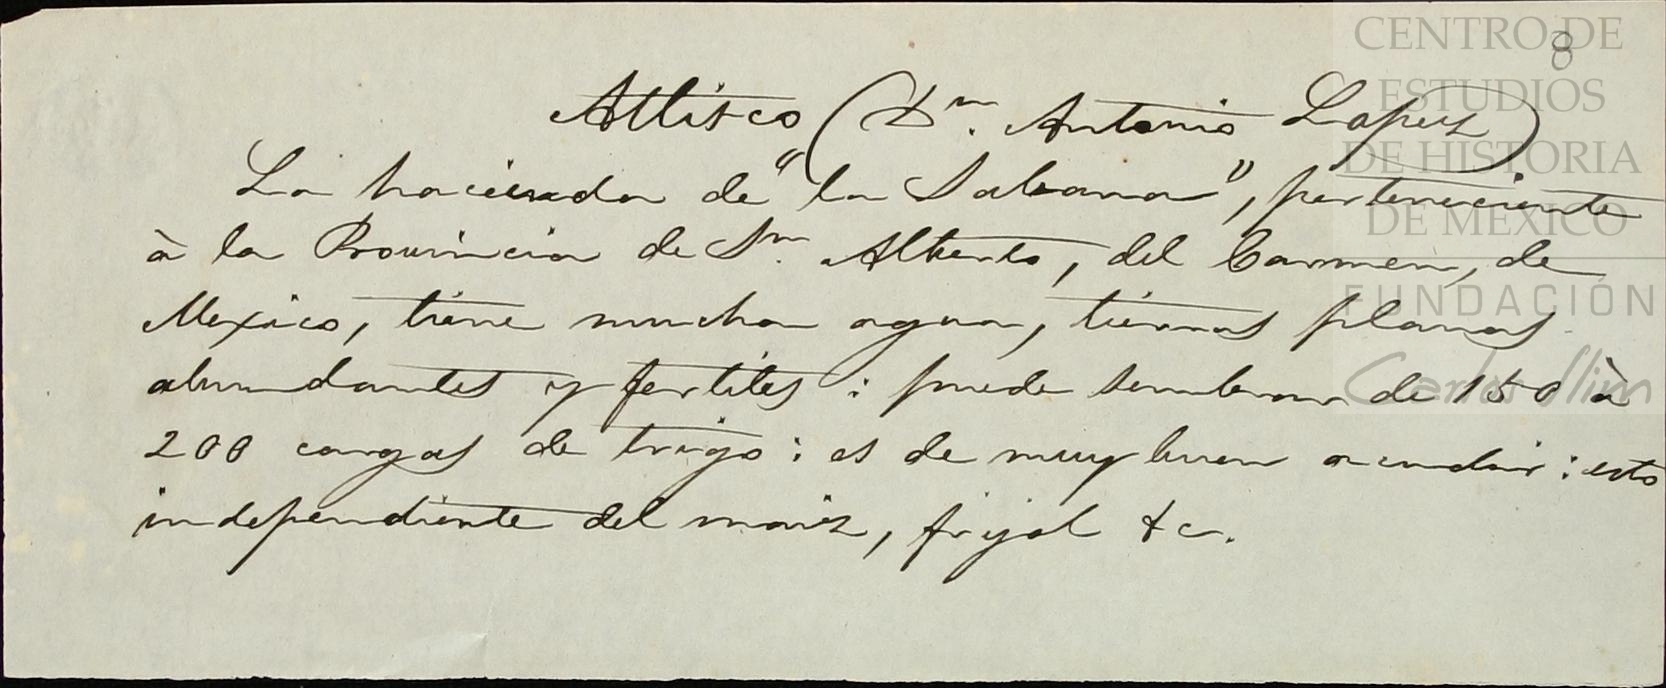 8
Atlisco (Dn. Antonio Lopez)
La hacienda de "la Sabana", perteneciente
à la Provincia de Sn. Alberto, del Carmen, de
Mexico, tiene mucha agua, tierras planas
abundantes y fertiles: puede sembrar de 150 à
200 cargas de trigo: es de muy buen acudir: esto
independiente del maiz, frijol &c.
CENTRO DE
ESTUDIOS
DE HISTORIA
DE MEXICO
FUNDACIÓN
Carlos Slim